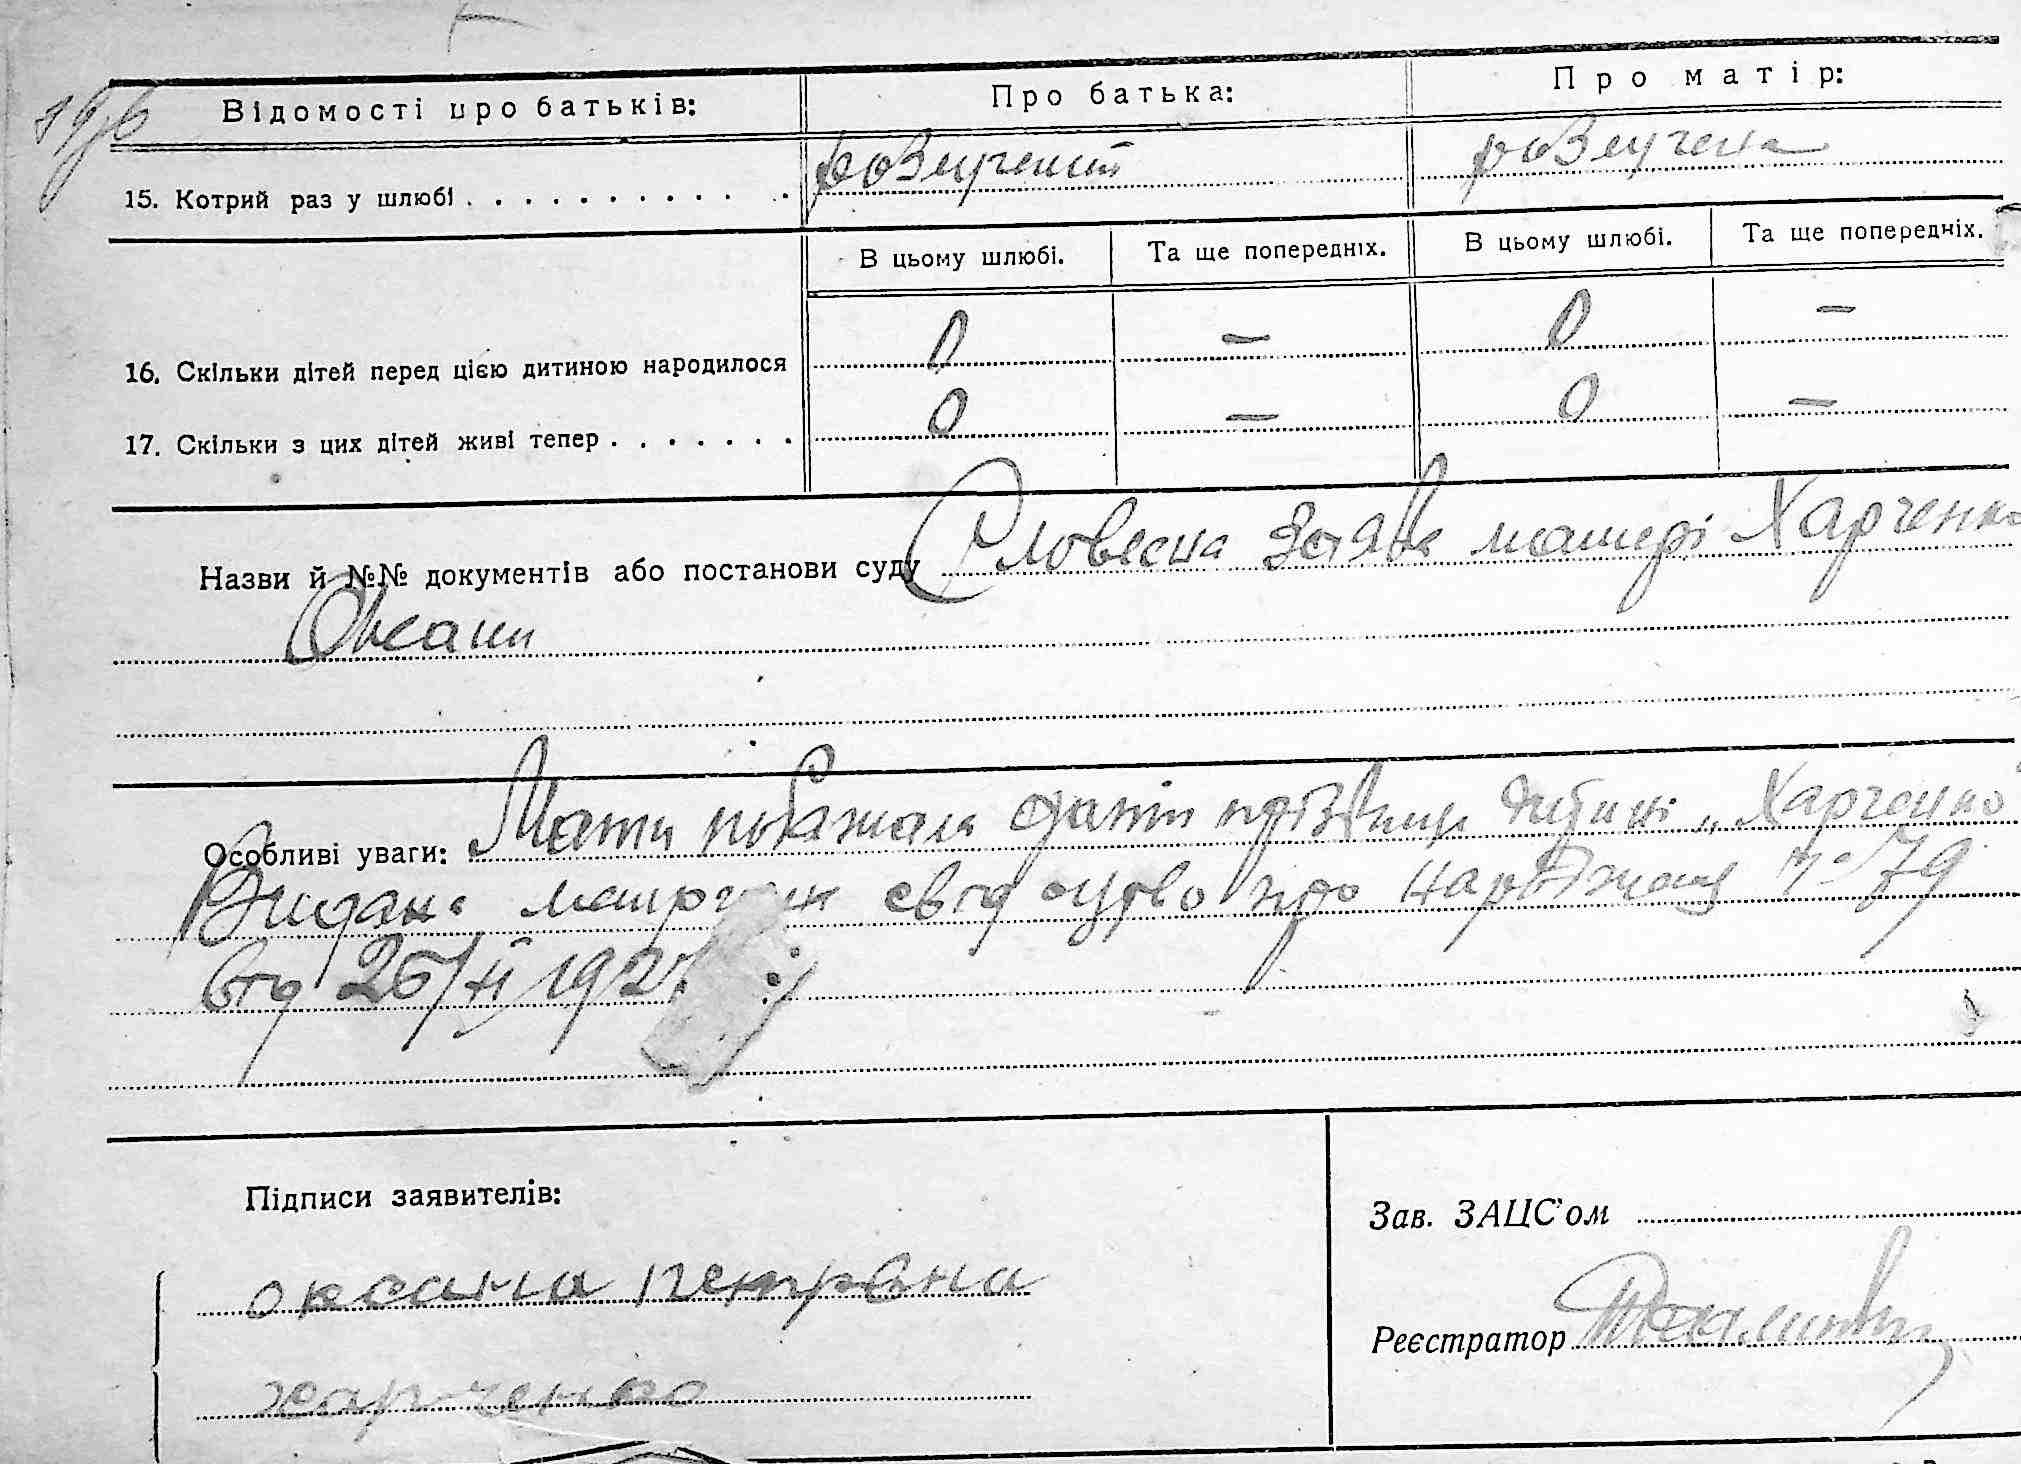 Відомості про батьків: Про батька: Про матір:
15. Котрий раз у шлюбі розлучений розлучена
В цьому шлюбі. Та ще попередніх. В цьому шлюбі. Та ще попередніх.
16. Скільки дітей перед цією дитиною народилося 0 — 0 —
17. Скільки з цих дітей живі тепер 0 — 0 —
Назви й №№ документів або постанови суду Словесна заява матері Харченко
Оксани
Особливі уваги: Мати побажала дати прізвище дитині „Харченко
Видано свідоцтво про народження № 79
від 25/XI 192
Підписи заявителів:
Зав. ЗАЦС'ом
оксана петрвна
Реєстратор
харченко